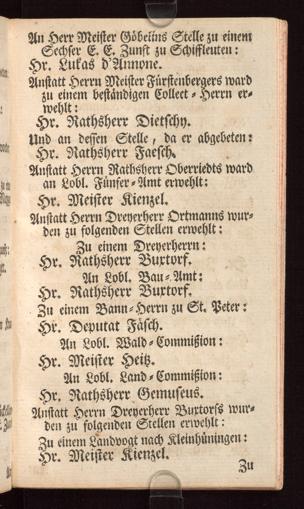 An Herr Meister Göbelins Stelle zu einem
Sechser E. E. Zunft zu Schiffleuten:
Hr. Lukas d'Annone.
Anstatt Herrn Meister Fürstenbergers ward
zu einem beständigen Collect-Herrn er-
wehlt:
Hr. Rathsherr Dietschy.
Und an dessen Stelle, da er abgebeten:
Hr. Rathsherr Faesch.
Anstatt Herrn Rathsherr Oberriedts ward
an Lobl. Fünfer-Amt erwehlt:
Hr. Meister Kienzel.
Anstatt Herrn Dreyerherr Ortmanns wur-
den zu folgenden Stellen erwehlt:
Zu einem Dreyerherrn:
Hr. Rathsherr Buxtorf.
An Lobl. Bau-Amt:
Hr. Rathsherr Buxtorf.
Zu einem Bann-Herrn zu St. Peter:
Hr. Deputat Fäsch.
An Lobl. Wald-Commißion:
Hr. Meister Heitz.
An Lobl. Land-Commißion:
Hr. Rathsherr Gemuseus.
Anstatt Herrn Dreyerherr Buxtorfs wur-
den zu folgenden Stellen erwehlt:
Zu einem Landvogt nach Kleinhüningen:
Hr. Meister Kienzel.
Zu